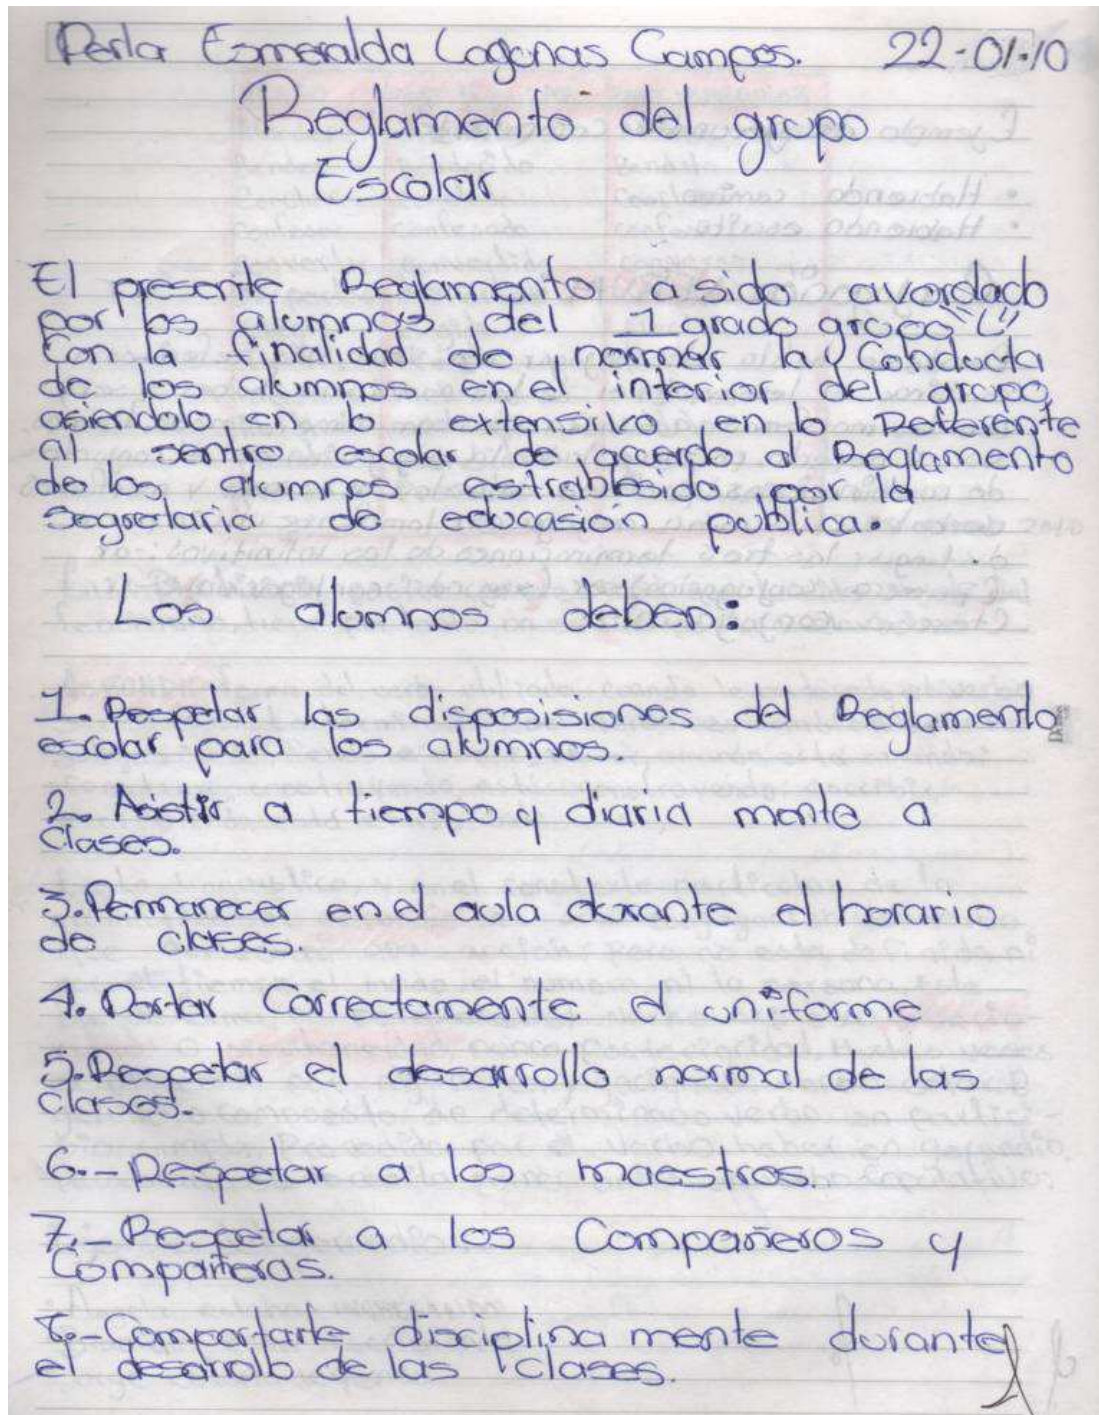 Perla Esmeralda Lagunas Campos. 22-01-10
Reglamento del grupo
Escolar
El presente Reglamento a sido avordado
por los alumnos del 1 grado grupo "C"
Con la finalidad de normar la Conducta
de los alumnos en el interior del grupo,
asiendolo en lo extensivo en lo Referente
al sentro escolar de acuerdo al Reglamento
de los alumnos estrablesido por la
Segretaria de educasión publica.
Los alumnos deben:
1. Respetar las disposisiones del Reglamento
escolar para los alumnos.
2. Asistir a tiempo y diaria mente a
Clases.
3. Permanecer en el aula durante el horario
de clases.
4. Portar Correctamente el uniforme
5. Respetar el desarrollo normal de las
clases.
6.- Respetar a los maestros.
7.- Respetar a los Compañeros y
Compañeras.
8.- Comportarte disciplina mente durante
el desarrollo de las clases.